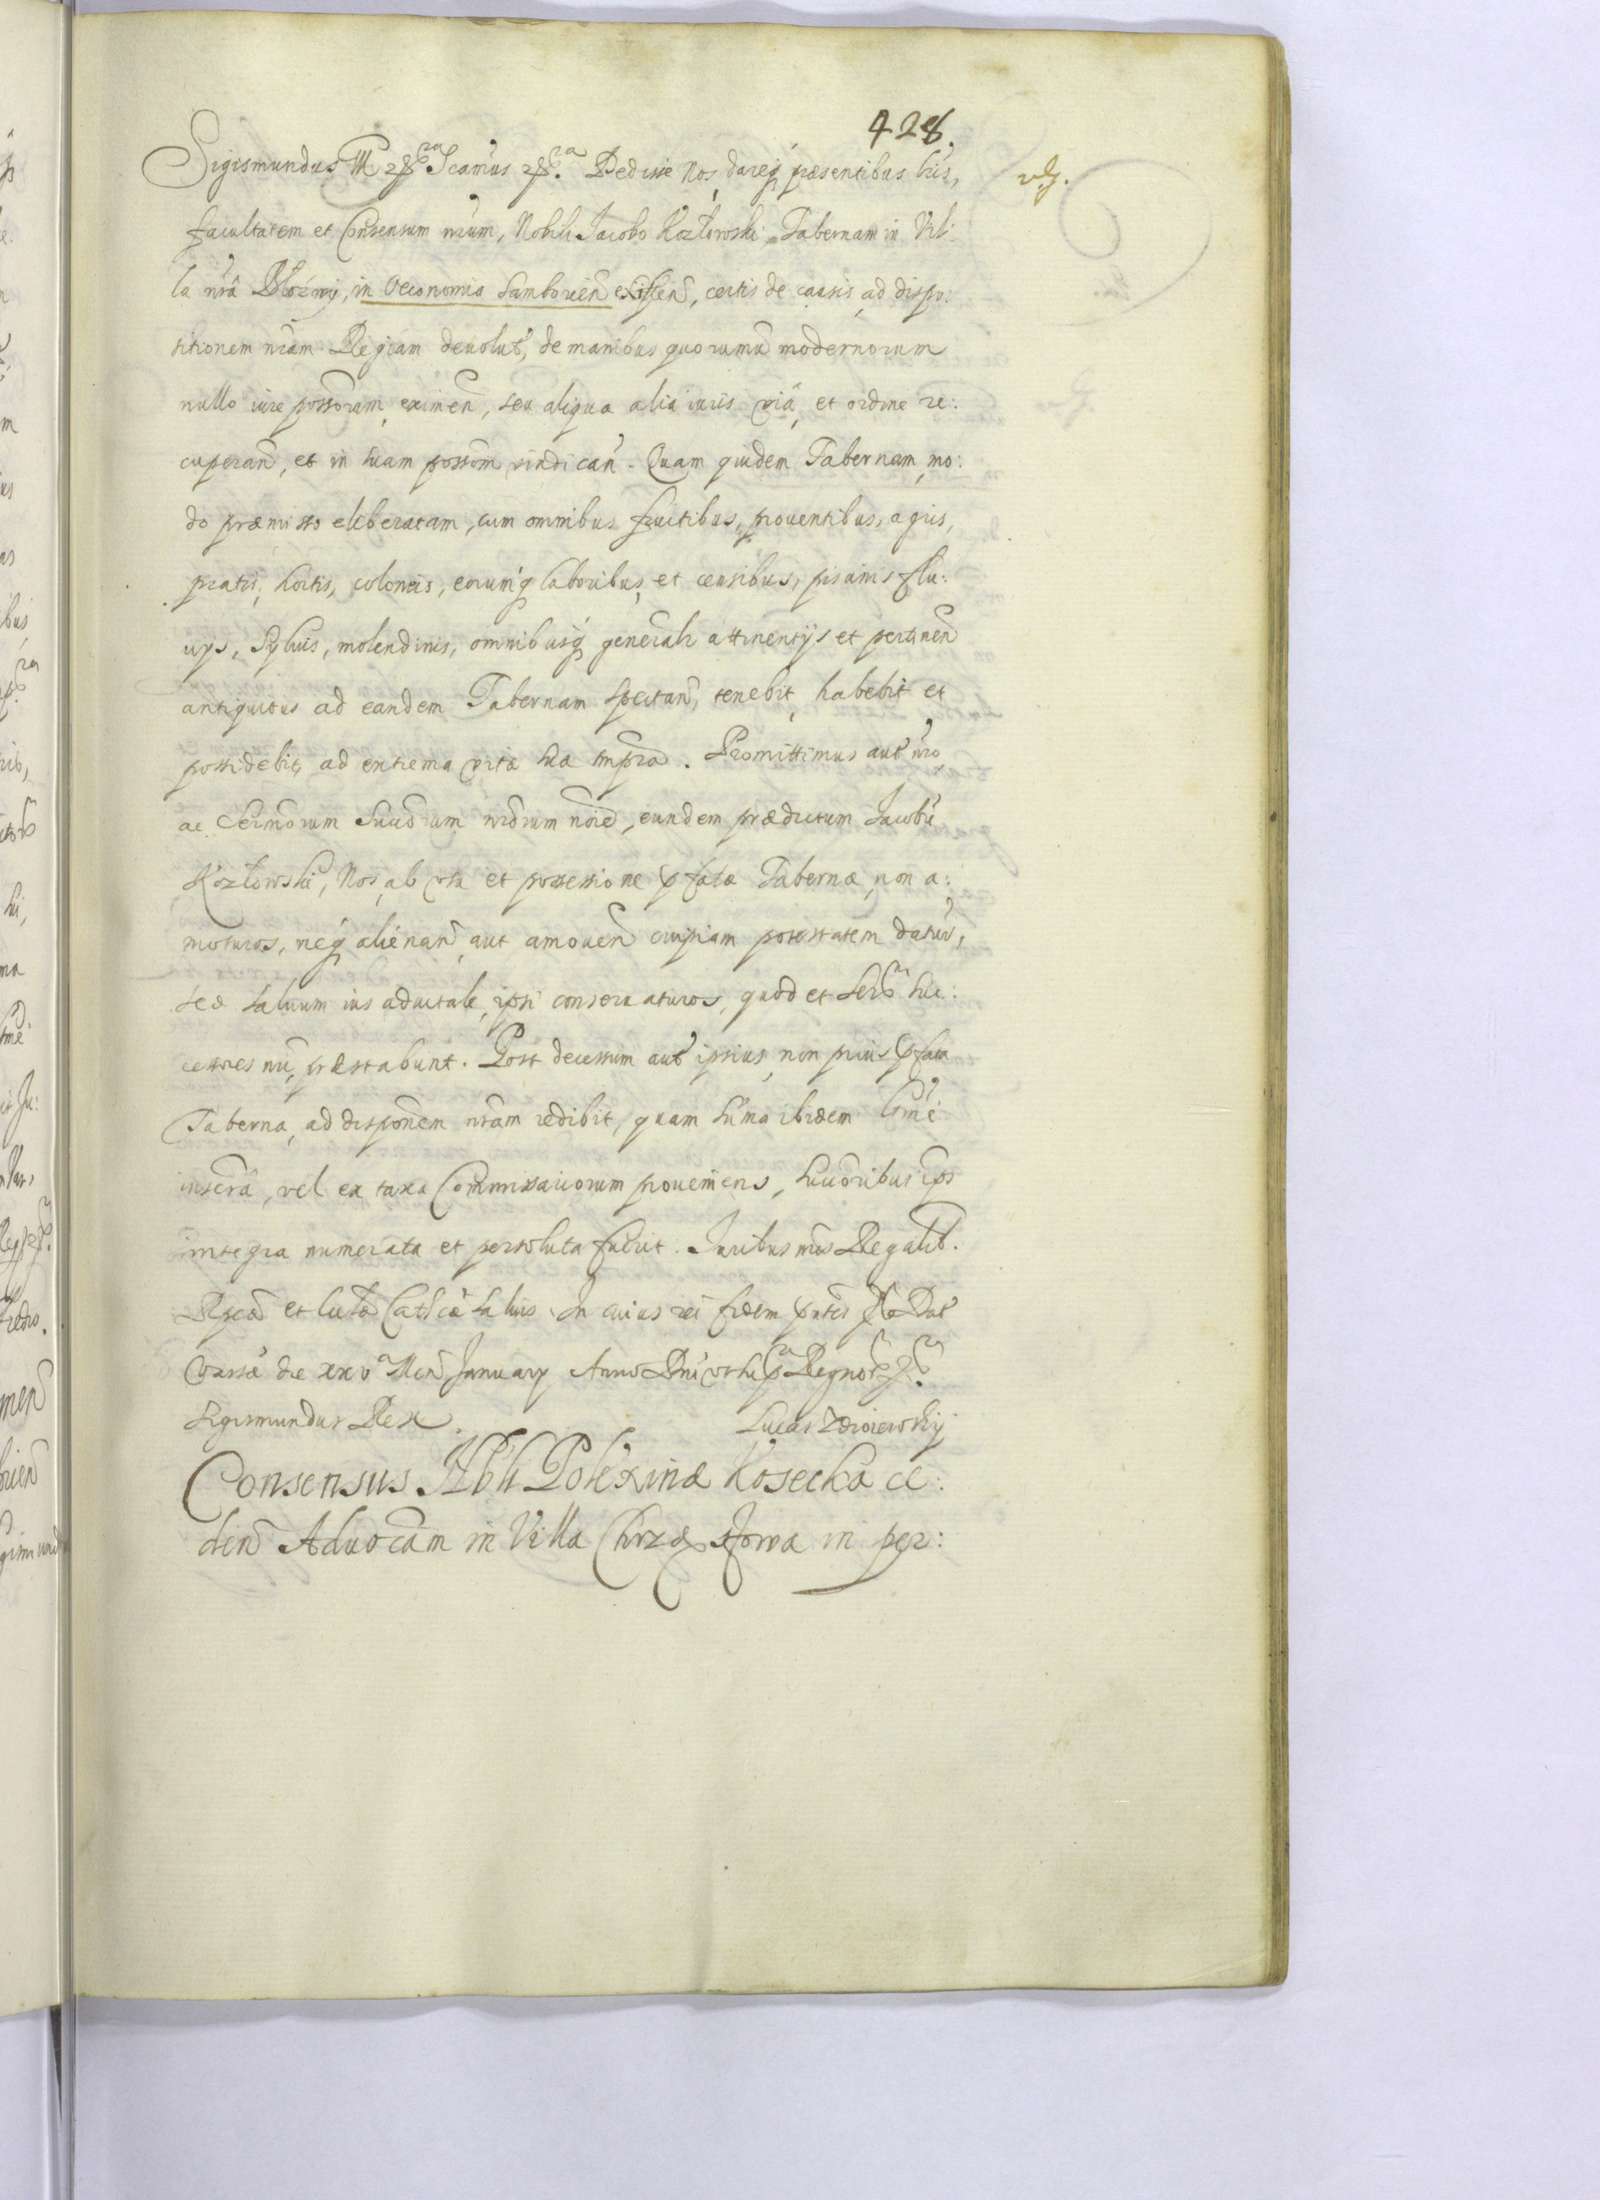 428.
Sigismundus III Scamus Dedisse Nos, dareq praesentibus lris,
facultatem et Consensum nrum, Nobili Jacobo Kozłowski, Tabernam in Vil:
la nrâ Błożwy, in Oeconomia Samborien existen, certis de causis, ad dispo:
sitionem nram Regiam deuolut, de manibus quorumuis modernorum
nullo iure possorum, eximen, seu aliqua alia iuris viâ, et ordine re:
cuperan, et in suam possom vindican. Quam quidem Tabernam, mo:
do praemisso eliberatam, cum omnibus fructibus, prouentibus, agris,
pratis, hortis, colonis, eorumq laboribus, et censibus, piscinis flu:
uijs, Syluis, molendinis, omnibusq generali attinentijs et pertinen
antiquitus ad eandem Tabernam spectan, tenebit, habebit et
possidebit, ad extrema vitæ suæ tmpra. Promittimus aut nro
ac Sermorum Succrum nrorum noie, eundem prædictum Jacobu
Kozłowski, Nos, ab usu et possessione pfatæ Tabernæ, non a:
moturos, neq alienan aut amouen cuipiam potestatem datur,
sed saluum ius aduitale, ipsi conseruaturos, quod et Sermi Suc:
cessores nri, præstabunt. Post decessum aut ipsius, non prius pfata
Taberna, ad disponem nram redibit, quam suma ibidem
inscra, vel ex taxa Commissariorum proueniens, succoribus ips
integra numerata et persoluta fuerit. Juribus nris Regalib.
Reipcæ et Ecclæ Catlcæ saluis. In cuius rei fidem Dat
Varsæ die xxv Men January Anno Dni Regnor
Sigismundus Rex.
Lucas
Consensus Nbli Polexinæ Kosecka ce:
den Aduocam in Villa in per: